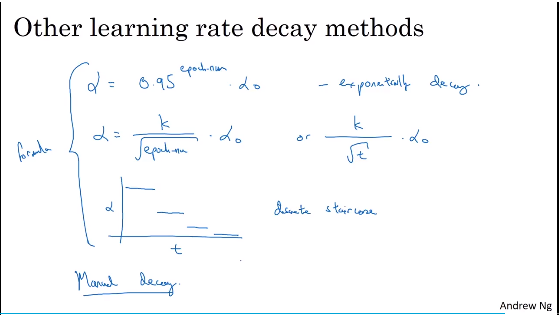 Other learning rate decay methods
α = 0.95^epoch-num · α₀ - exponentially decay.
formula
α = k / √epoch-num · α₀ or k / √t · α₀
α
t
discrete staircase
Manual decay.
Andrew Ng